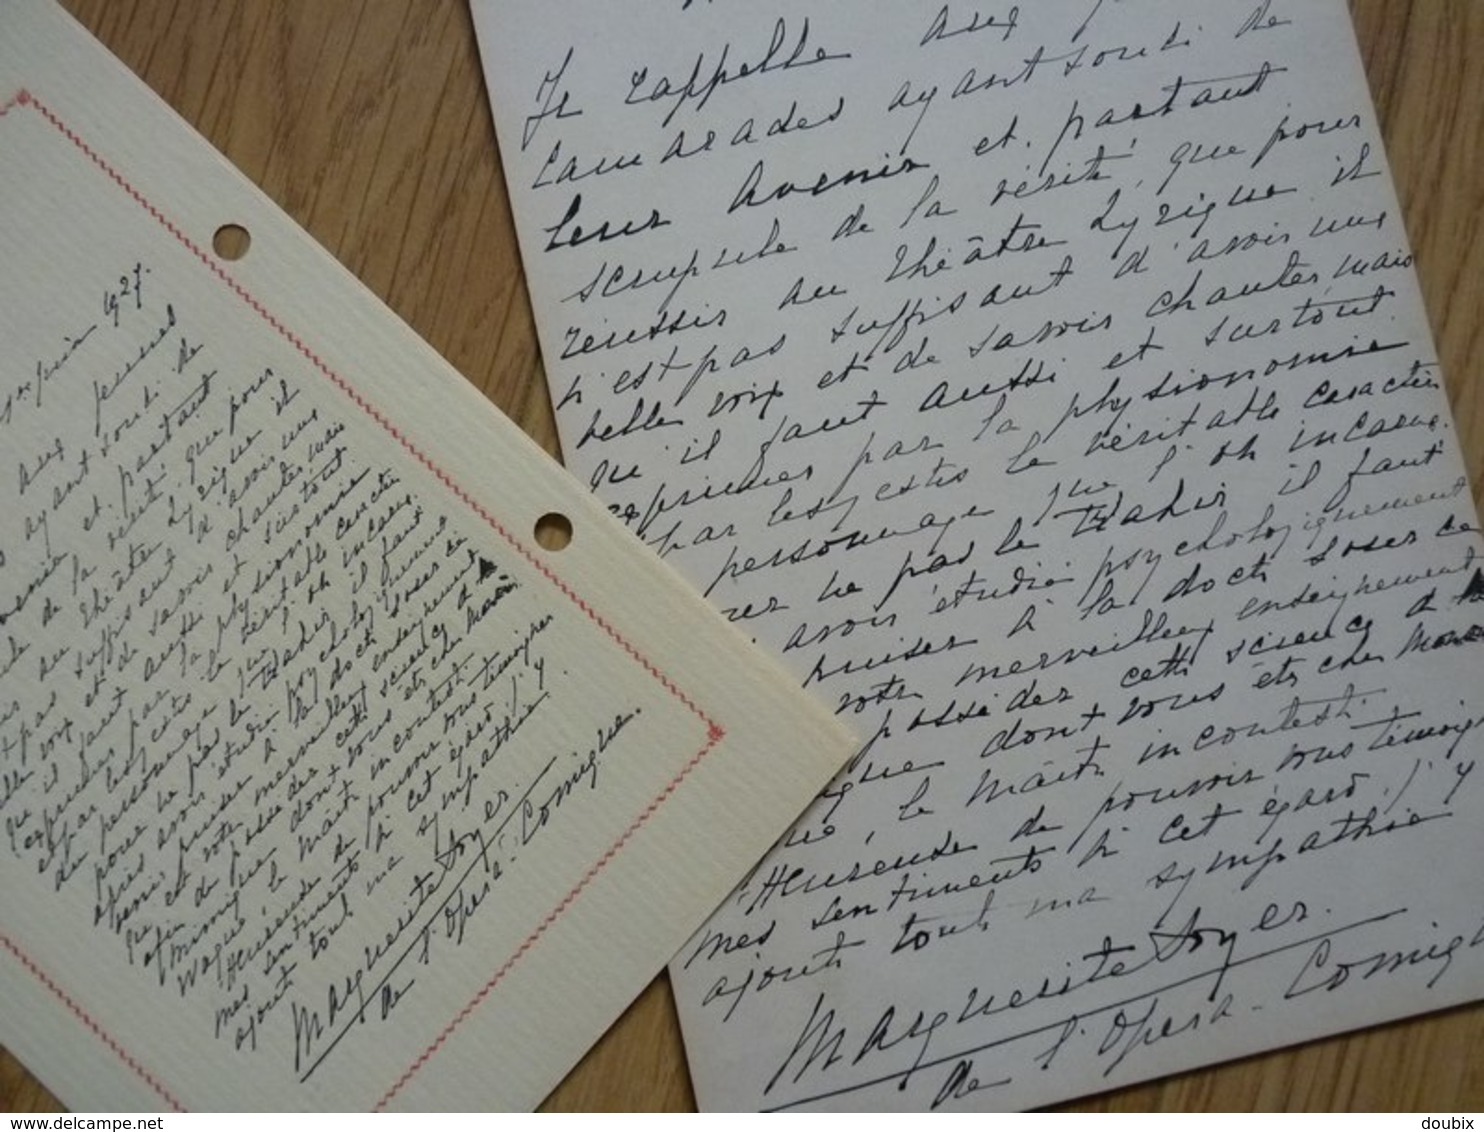 1er juin 1927.
aux jeunes
ayant souci de
et. partant
de la vérité, que pour
au théâtre Lyrique il
pas suffisant d'avoir une
belle voix et de savoir chanter, mais
qu'il faut aussi et surtout.
exprimer par la physionomie
et par les gestes le véritable caractère
du personnage que l'on incarne.
pour ne pas le trahir il faut
après avoir étudié psychologiquement
puiser à la docte source
qu'est votre merveilleux enseignement
afin de posséder cette science
mimique dont vous êts cher
Wague, le maître incontesté.
Heureuse de pouvoir vous témoigner
mes sentiments à cet égard, j'y
ajoute toute ma sympathie.
Marguerite Soyer.
de l'Opéra-Comique.
Je rappelle aux
camarades ayant souci de
leur avenir et. partant
scrupule de la vérité, que pour
réussir au théâtre Lyrique il
n'est pas suffisant d'avoir une
belle voix et de savoir chanter, mais
qu'il faut aussi et surtout.
exprimer par la physionomie
par les gestes le véritable caractère
personnage que l'on incarne.
ne pas le trahir il faut
avoir étudié psychologiquement
puiser à la docte source
votre merveilleux enseignement
posséder cette science
dont vous êts cher
le maître incontesté.
Heureuse de pouvoir vous témoig
mes sentiments à cet égard, j'y
ajoute toute ma sympathie
Marguerite Soyer.
de l'Opéra-Comiq
delcampe.net
doubix